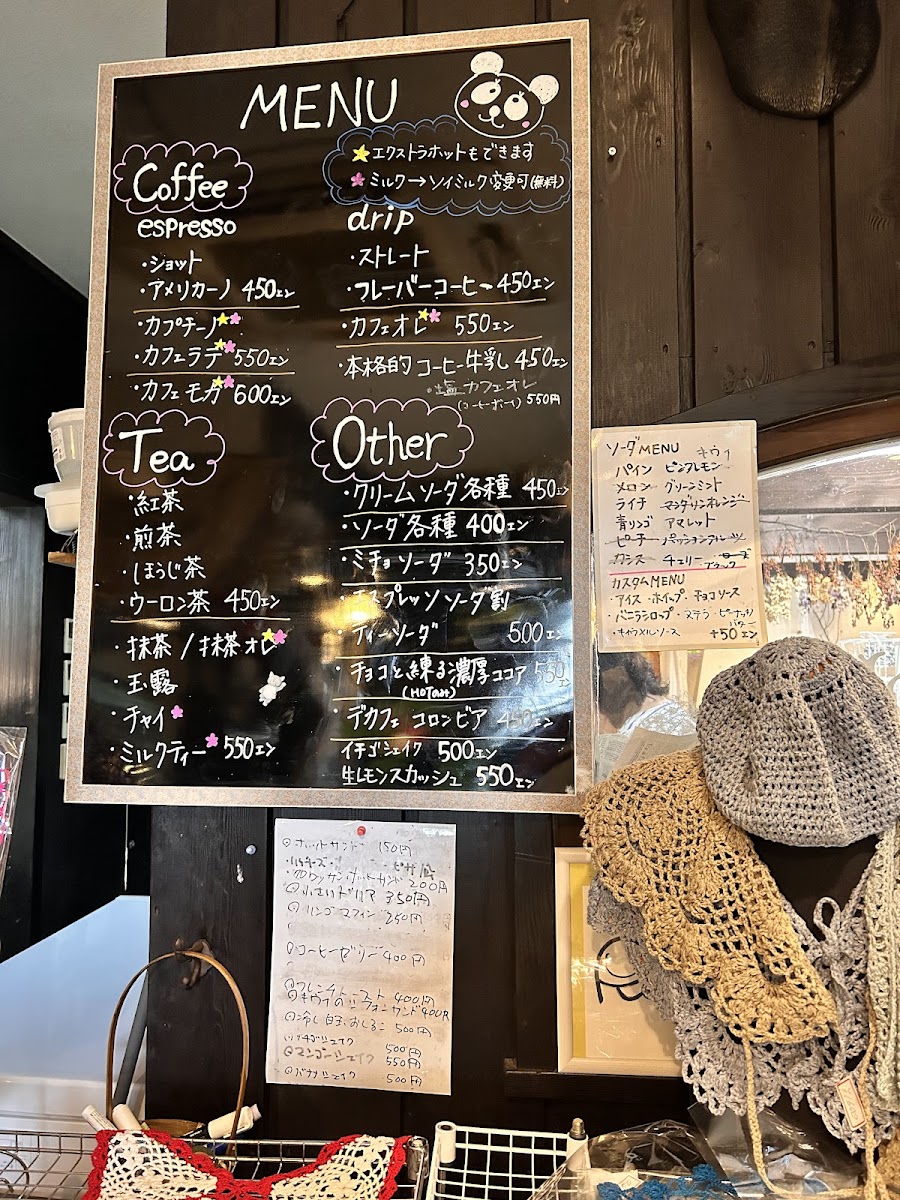 MENU
★エクストラホットもできます
ミルク→ソイミルク変更可(無料)
Coffee
espresso
・ショット
・アメリカーノ 450エン
・カプチーノ
・カフェラテ 550エン
・カフェモカ 600エン
drip
・ストレート
・フレーバーコーヒー 450エン
・カフェオレ 550エン
・本格的コーヒー牛乳 450エン
・塩カフェオレ
(コーヒーボーイ) 550円
Tea
・紅茶
・煎茶
・ほうじ茶
・ウーロン茶 450エン
・抹茶/抹茶オレ
・玉露
・チャイ
・ミルクティー 550エン
Other
・クリームソーダ各種 450エン
・ソーダ各種 400エン
・ミチョソーダ 350エン
・エスプレッソソーダ割
・ティーソーダ 500エン
・チョコと練る濃厚ココア 550エン
(HOTonly)
・デカフェ コロンビア 450エン
イチゴシェイク 500エン
生レモンスカッシュ 550エン
ソーダMENU キウイ
パイン ピンクレモン
メロン グリーンミント
ライチ マンダリンオレンジ
青リンゴ アマレット
ピーチ パッションフルーツ
カシス チェリー ローズ
ブラック
カスタムMENU
・アイス・ホイップ・チョコソース
・バニラシロップ・ヌテラ・ピーナッツ
バター
・キャラメルソース +50エン
ホットサンド 150円
・ハムチーズ・ ピザ風
・クロワッサンホットサンド 200円
小さいドリア 350円
リンゴマフィン 250円
コーヒーゼリー 400円
フレンチトースト 400円
キウイのシフォンサンド 400円
冷し白玉おしるこ 500円
イチゴシェイク 500円
マンゴーシェイク 550円
バナナシェイク 500円